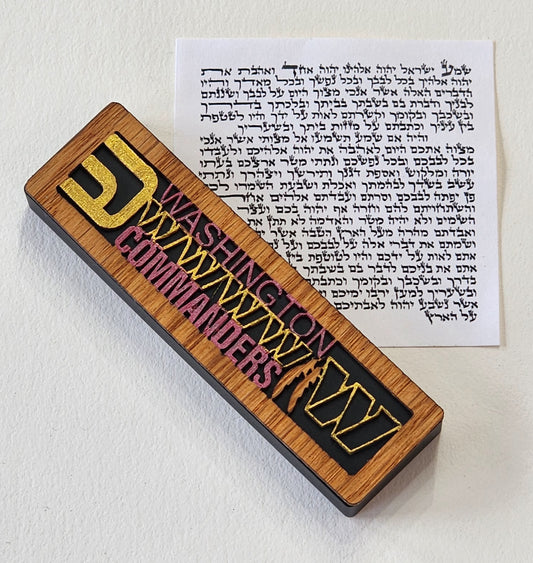 שמע ישראל יהוה אלהינו יהוה אחד ואהבת את
יהוה אלהיך בכל לבבך ובכל נפשך ובכל מאדך והיו
הדברים האלה אשר אנכי מצוך היום על לבבך ושננתם
לבניך ודברת בם בשבתך בביתך ובלכתך בדרך
ובשכבך ובקומך וקשרתם לאות על ידך והיו לטטפת
בין עיניך וכתבתם על מזזות ביתך ובשעריך
והיה אם שמע תשמעו אל מצותי אשר אנכי
מצוה אתכם היום לאהבה את יהוה אלהיכם ולעבדו
בכל לבבכם ובכל נפשכם ונתתי מטר ארצכם בעתו
יורה ומלקוש ואספת דגנך ותירשך ויצהרך ונתתי
עשב בשדך לבהמתך ואכלת ושבעת השמרו לכם
פן יפתה לבבכם וסרתם ועבדתם אלהים
והשתחויתם להם וחרה אף יהוה בכם ועצר
השמים ולא יהיה מטר והאדמה לא תתן את
ואבדתם מהרה מעל הארץ הטבה אשר יהוה
ושמתם את דברי אלה על לבבכם ועל נפשכם
אתם לאות על ידכם והיו לטוטפת בין
אתם את בניכם לדבר בם בשבתך
בדרך ובשכבך ובקומך וכתבתם
ובשעריך למען ירבו ימיכם
אשר נשבע יהוה לאבתיכם
על הארץ
ש
WASHINGTON
WWWWWW
COMMANDERS
W